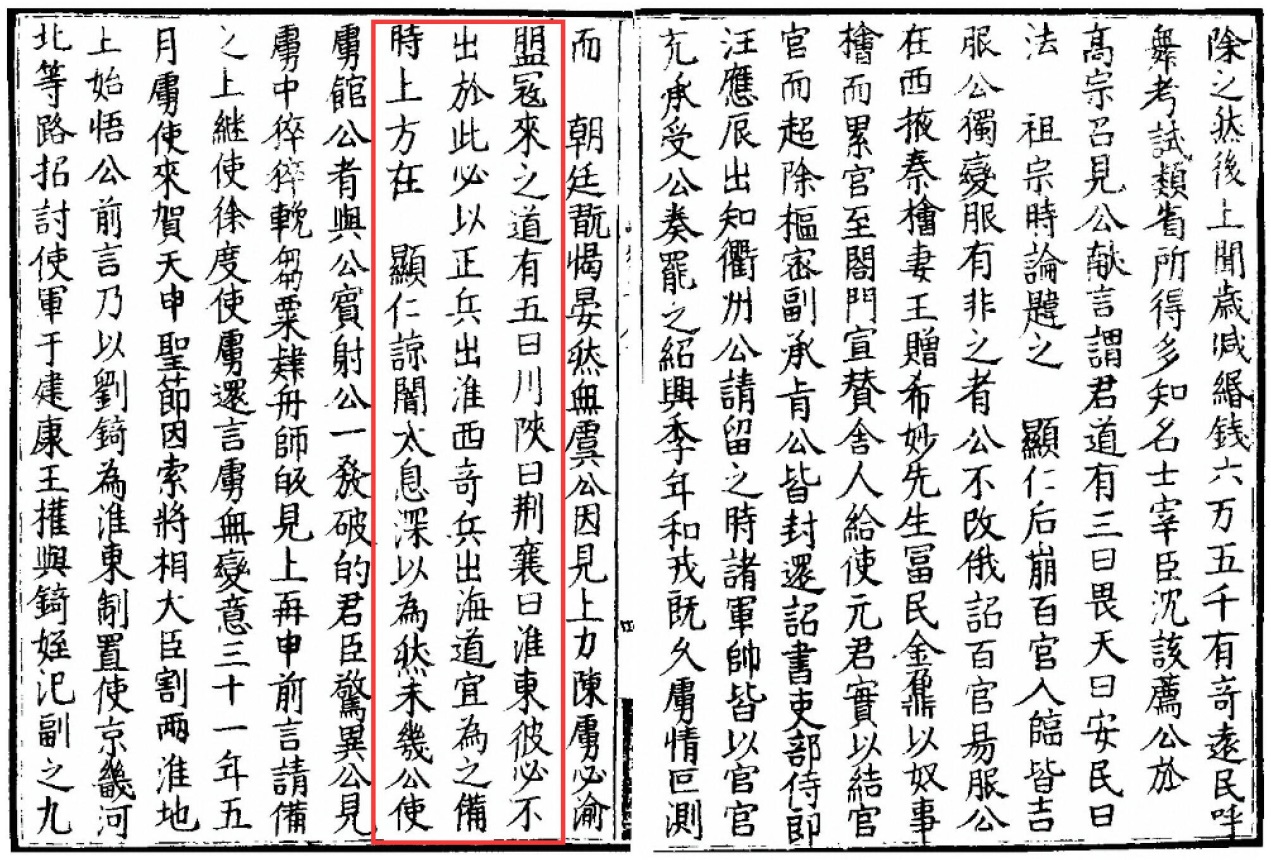 除之然後上聞歲減緡錢六万五千有奇遠民呼
舞考試類省所得多知名士宰臣沈該薦公於
高宗召見公献言謂君道有三曰畏天曰安民曰
法 祖宗時論韙之 顯仁后崩百官入臨皆吉
服公獨變服有非之者公不改俄詔百官易服公
在西掖秦檜妻王贈希妙先生冨民金鼐以奴事
檜而累官至閤門宣賛舍人給使元君實以結官
官而超除樞密副承旨公皆封還詔書吏部侍郎
汪應辰出知衢州公請留之時諸軍帥皆以官官
充承受公奏罷之紹興季年和戎既久虜情叵測
而 朝廷翫愒晏然無虞公因見上力陳虜必渝
盟冦來之道有五曰川陜曰荆襄曰淮東彼必不
出於此必以正兵出淮西奇兵出海道宜為之備
時上方在 顯仁諒闇太息深以為然未幾公使
虜館公者與公賓射公一發破的君臣驚異公見
虜中稡稡輓芻粟肄舟師皈見上再申前言請備
之上継使徐度使虜還言虜無變意三十一年五
月虜使來賀天申聖節因索將相大臣割兩淮地
上始悟公前言乃以劉錡為淮東制置使京畿河
北等路招討使軍于建康王權與錡姪汜副之九